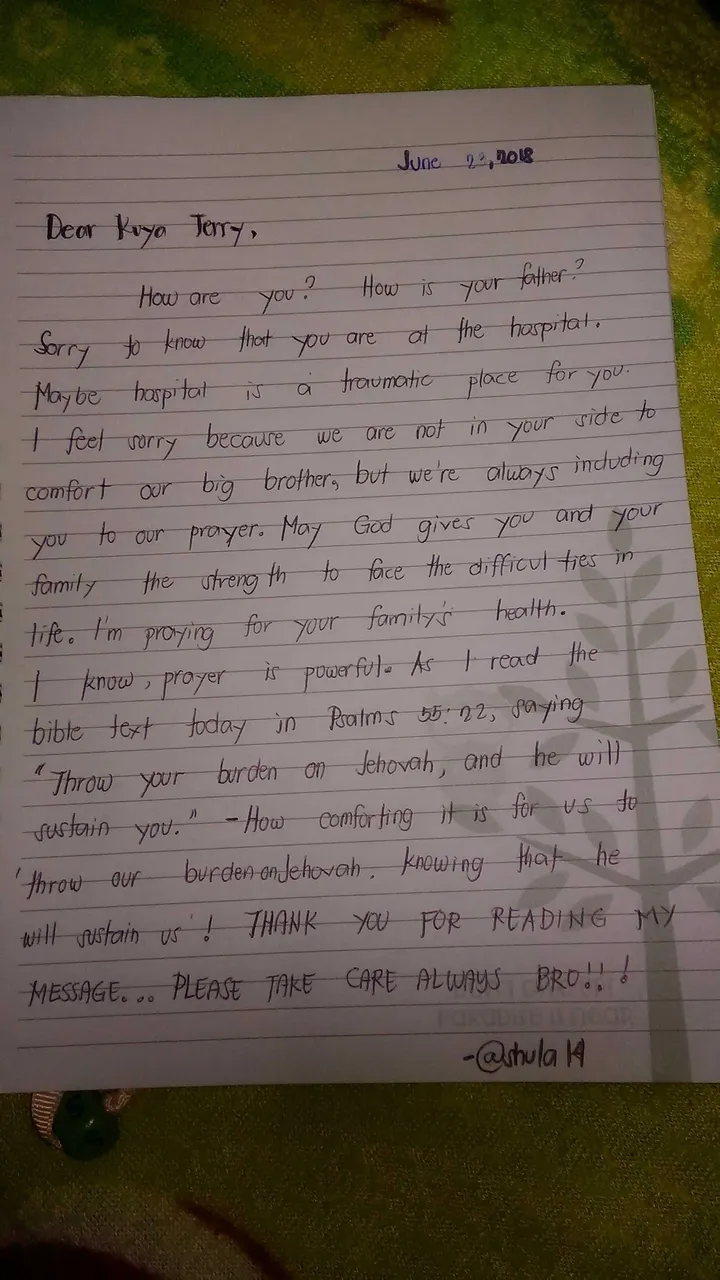 June 23, 2018
Dear Kuya Jerry,
How are you? How is your father?
Sorry to know that you are at the hospital.
Maybe hospital is a traumatic place for you.
I feel sorry because we are not in your side to
comfort our big brother, but we're always including
you to our prayer. May God gives you and your
family the strength to face the difficulties in
life. I'm praying for your family's health.
I know, prayer is powerful. As I read the
bible text today in Psalms 55:22, saying
"Throw your burden on Jehovah, and he will
sustain you." - How comforting it is for us to
'throw our burden on Jehovah. knowing that he
will sustain us'! THANK YOU FOR READING MY
MESSAGE... PLEASE TAKE CARE ALWAYS BRO!!!
-@shula14